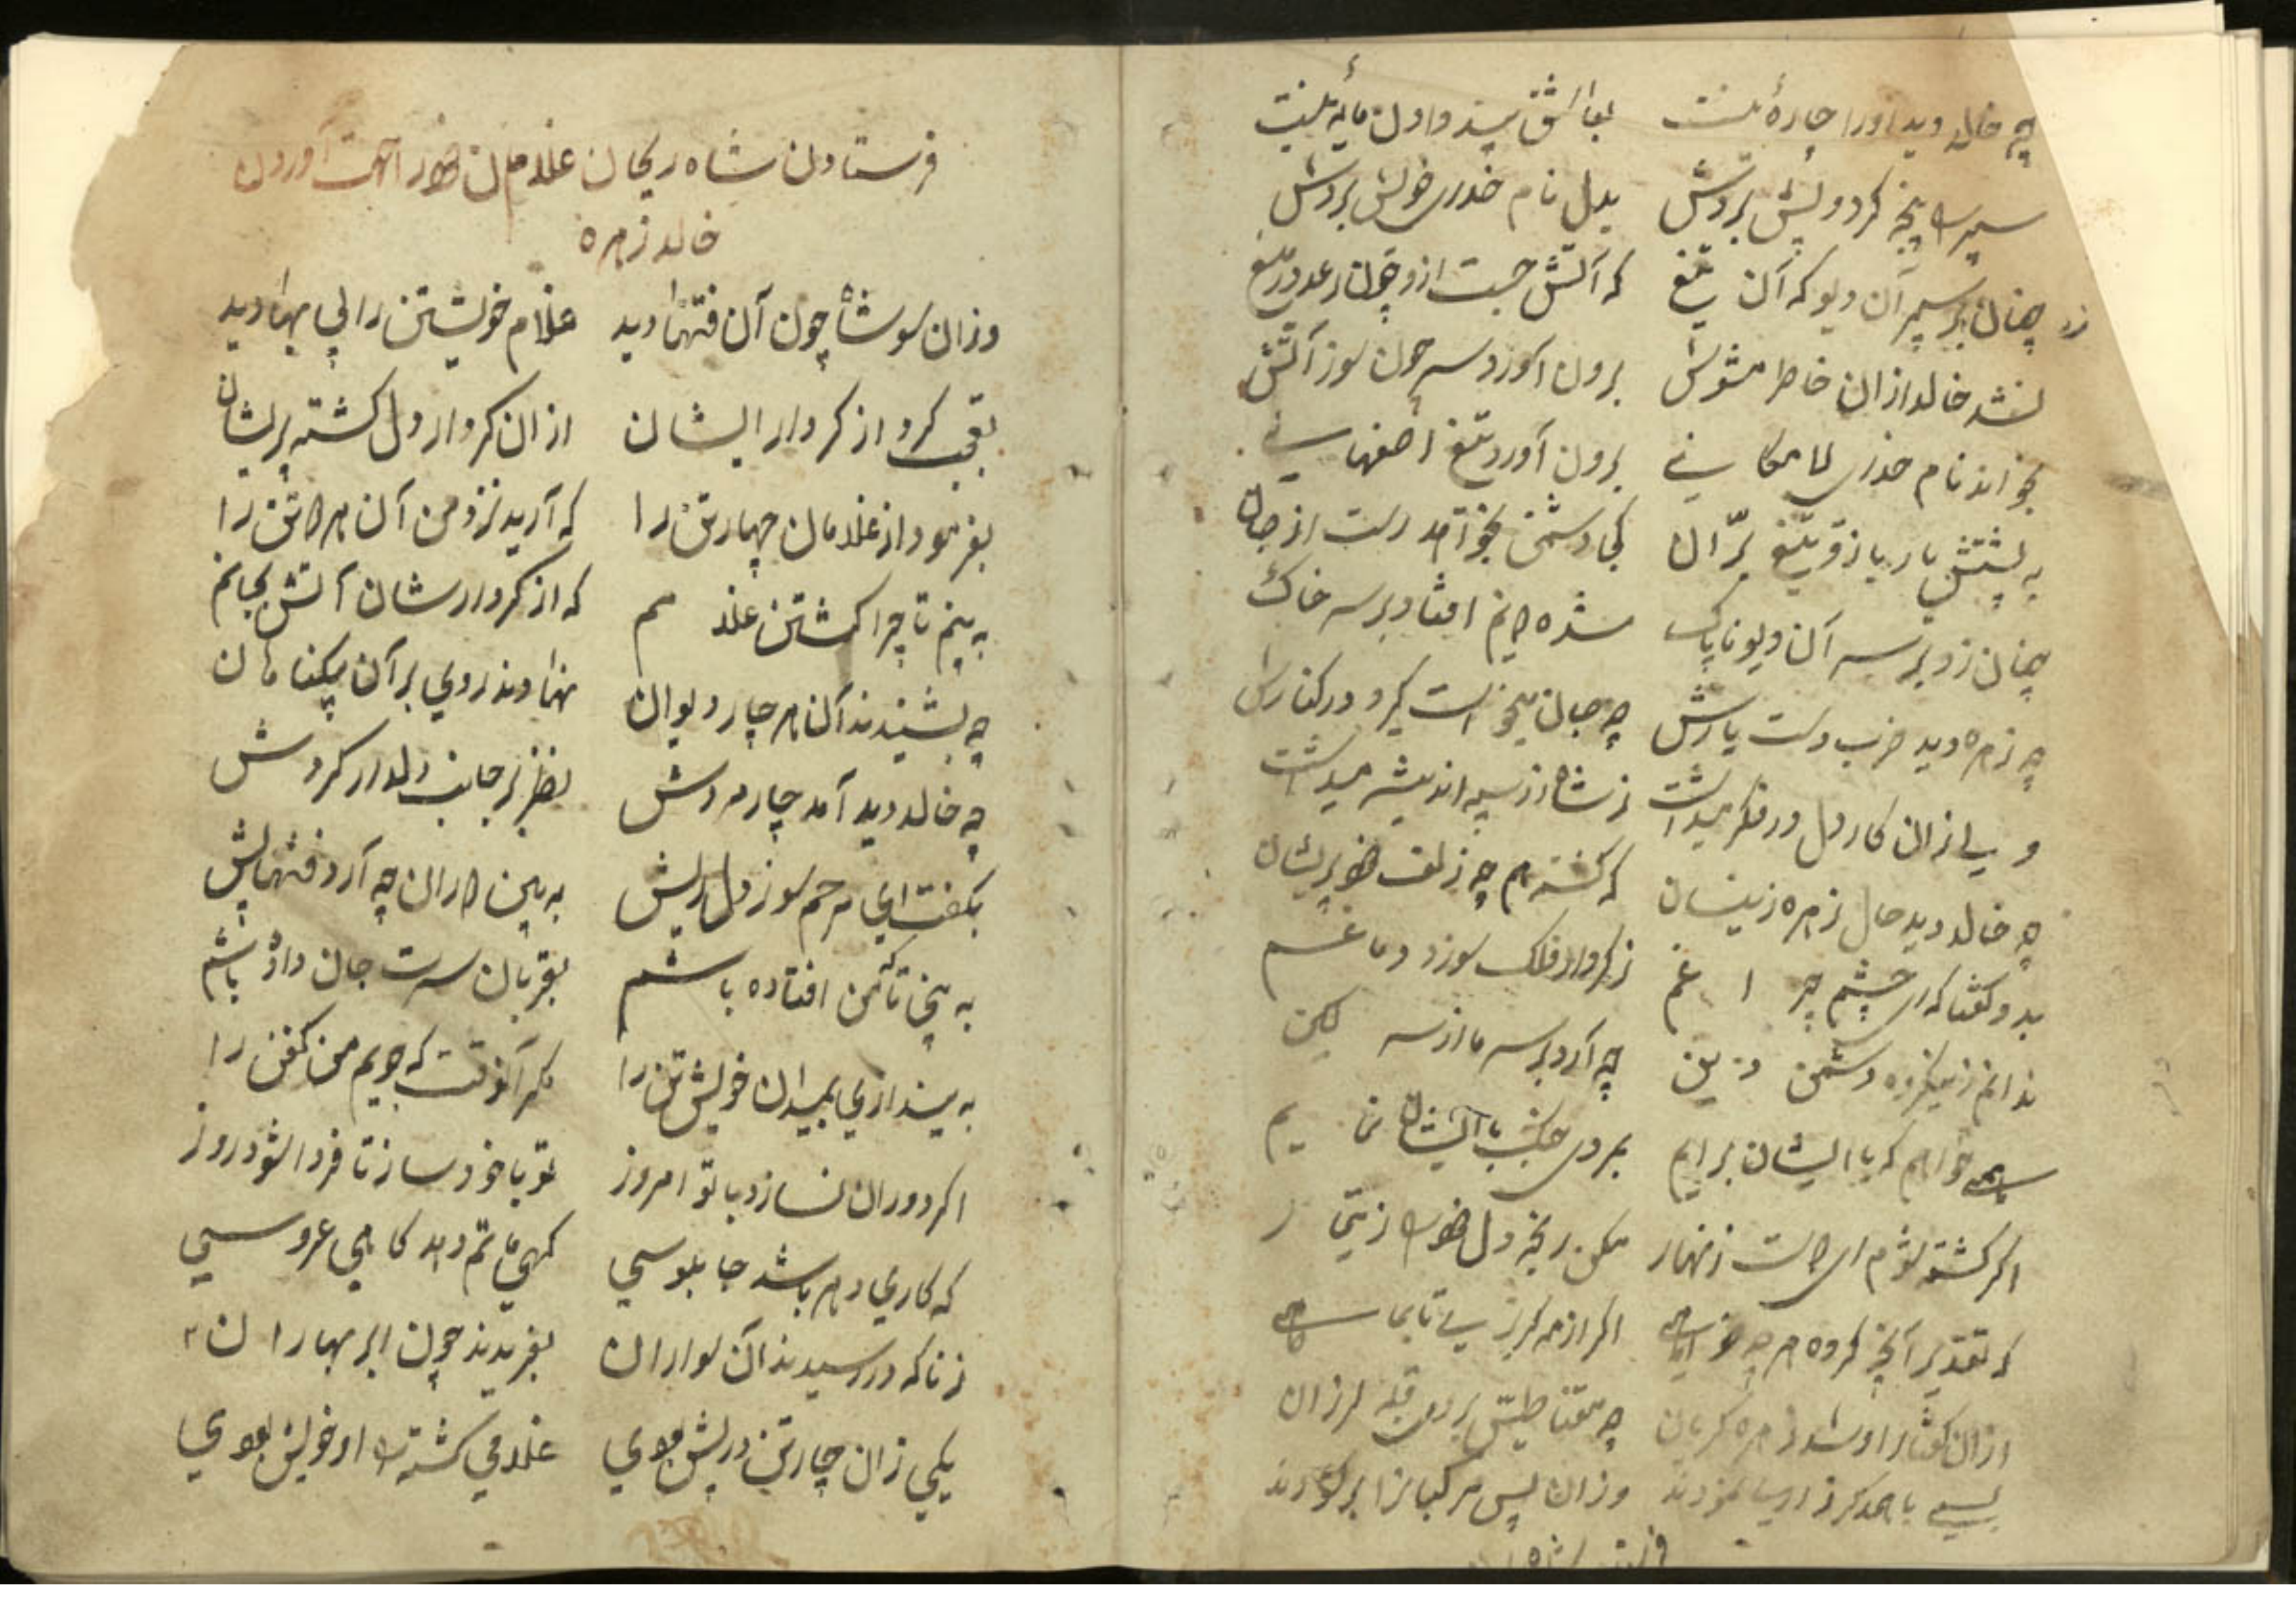 چه خالد دید او را چاره نیست بعاشق پند دادن مایه نیست
سپر سرپنجه کرد و پیش بردش بدل نام خدای خویش بردش
چنان زد بر سپر آن دیو که آن تیغ که آتش جست ازو چون رعد در میغ
نشد خالد ازان خاطر مشوش برون آورد سر چون سوز آتش
بخواند نام خدای لامکانی برون آورد تیغ اصفهانی
به پشتش یار بازو تیغ برّان کجا دشمن بخواهد رست از جان
چنان زد بر سر آن دیو ناپاک شده دونیم افتاد بر سر خاک
چه زهره دید ضرب دست یارش چه جان میخواست گیرد در کنارش
ولی زان کار دل در فکر میداشت ز شاه زر سپه اندیشه میداشت
چه خالد دید حال زهره زینسان که گشته هم چه زلف خود پریشان
بدو گفتا که ای چشم چراغم ز کردار فلک سوزد دماغم
ندانم زین کروه دشمن دین چه آرد بر سر ما از سر کین
همی خواهم که با ایشان برایم بمردی جنگ با ایشان نمایم
اگر کشته شوم ای دوست زنهار مکن رنجه دل خود را ز تیمار
که تقدیر آنچه کرده هر چه خواهی اگر از مه گریزی تا بماهی
ازان گفتار او شد زهره گریان چه مقناطیس بر روی قبله لرزان
بسی با همدگر زاری نمودند وزان پس مرکبانرا بر گشودند
فرستادن شاه ریحان غلامان خود را جهت آوردن
خالد زهره
وزان سو شاه چون آن فتنها دید غلام خویشتن را بی بها دید
تعجب کرد از کردار ایشان ازان کردار دل گشته پریشان
بفرمود از غلامان چهار تن را که آرید نزد من آن هر دو تن را
به بینم تا چرا کشتن غلامم که از کردارشان آتش بجانم
چه بشنیدند آن هر چار دیوان نهادند روی بر آن نیکنامان
چه خالد دید آمد چار مردش نظر بر جانب دلدار کردش
بگفت ای مرحم سوز دل ریش به بین دوران چه آرد فتنها پیش
به بینی تا که من افتاده باشم بقربان سرت جان داده باشم
به بیندازی بمیدان خویشتن را مگر آنوقت که جویم من کفن را
اگر دوران نسازد با تو امروز تو با خود ساز تا فردا شود روز
که کاری دهر باشد چابلوسی گهی ماتم دهد گاهی عروسی
زناگه در رسیدند آن سواران بغریدند چون ابر بهاران
یکی زان چار تن در پیش بودی غلامی کشته را او خویش بودی